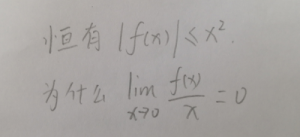 恒有 |f(x)| ≤ x².
为什么 lim x→0 f(x)/x = 0